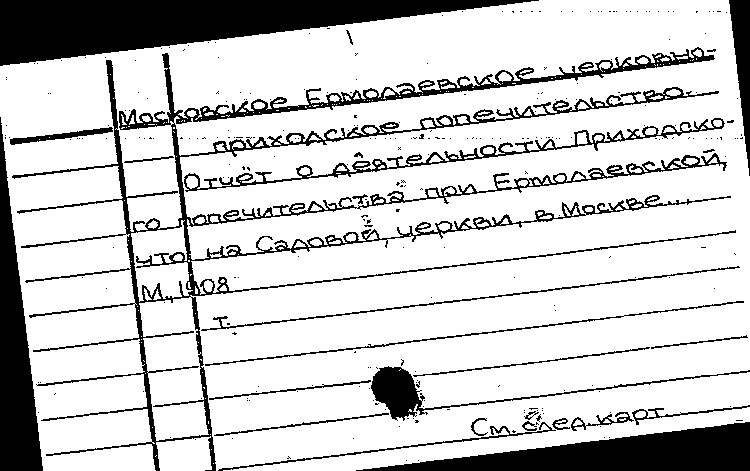 Московское Ермолаевское церковно-
приходское попечительство.
Отчёт о деятельности Приходско-
го попечительства при Ермолаевской,
что на Садовой, церкви, в Москве...,
М., 1908
т.
См. след. карт.